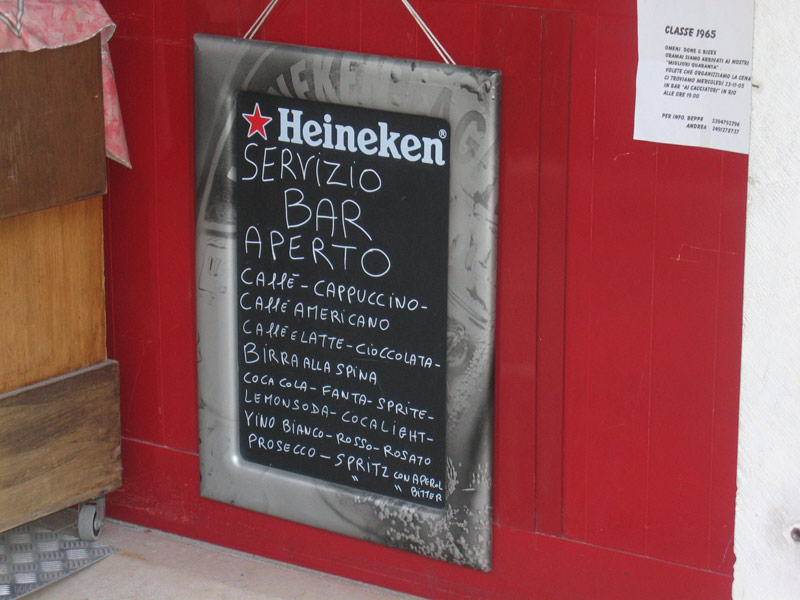 Heineken®
SERVIZIO
BAR
APERTO
CAFFÈ - CAPPUCCINO -
CAFFÈ AMERICANO
CAFFÈ E LATTE - CIOCCOLATA -
BIRRA ALLA SPINA
COCA COLA - FANTA - SPRITE -
LEMONSODA - COCA LIGHT -
VINO BIANCO - ROSSO - ROSATO
PROSECCO - SPRITZ CON APEROL
" " BITTER
CLASSE 1965
OMENI DONE E BISEX
ORAMAI SIAMO ARRIVATI AI NOSTRI
"MIGLIORI QUARANTA".
VOLETE CHE ORGANIZZIAMO LA CENA
CI TROVIAMO MERCOLEDI 23-11-05
IN BAR "AI CACCIATORI" IN RIO
ALLE ORE 19.00
PER INFO. BEPPE
ANDREA